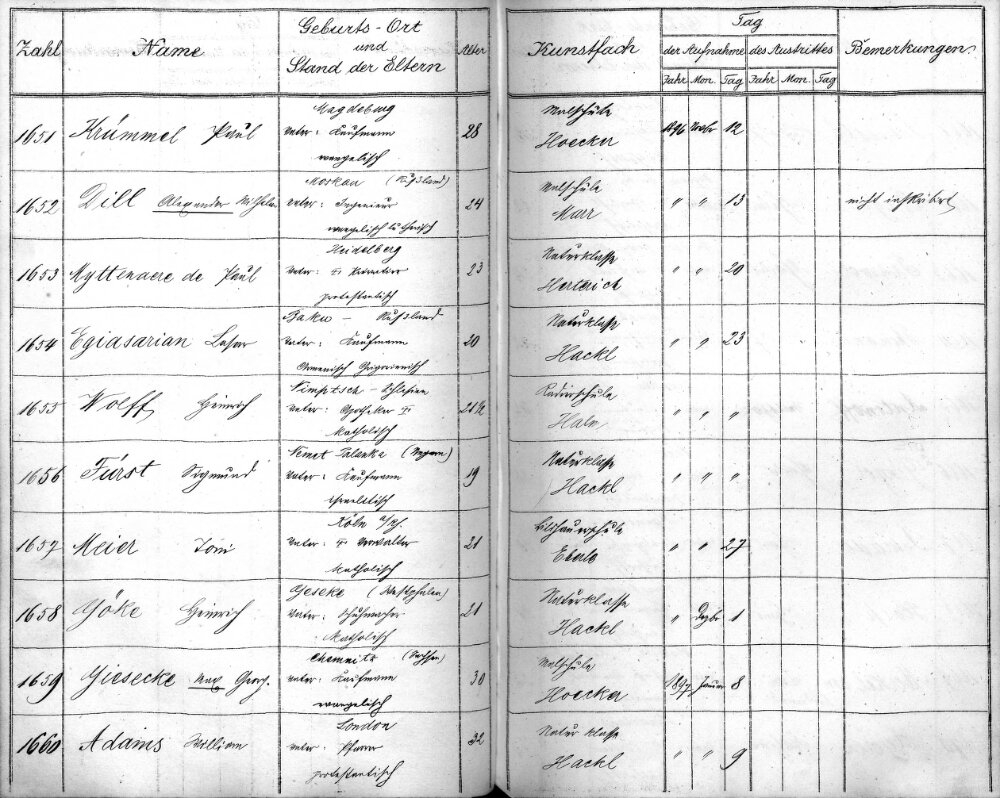 Zahl Name Geburts-Ort und Stand der Eltern Alter Kunstfach Tag der Aufnahme des Austrittes Bemerkungen
Jahr Mon. Tag Jahr Mon. Tag
Magdeburg
1651 Krümmel Paul Vater: Kaufmann 28
evangelisch
Malschule
Hoecker 1896 Novbr 12
Moskau (Rußland)
1652 Dill Alexander Wilhelm Vater: Ingenieur 24
evangelisch lutherisch
Malschule
Marr " " 13 nicht inskribirt
Heidelberg
1653 Myttenaere de Paul Vater: † 23
protestantisch
Naturklasse
Herterich " " 20
Baku – Rußland
1654 Egiasarian Lasar Vater: Kaufmann 20
Armenisch Grigorianisch
Naturklasse
Hackl " " 23
Nimptsch – Schlesien
1655 Wolff Heinrich Vater: Apotheker † 21½
Katholisch
Radierschule
Halm " " "
Nemet Palanka (Ungarn)
1656 Fürst Sigmund Vater: Kaufmann 19
israelitisch
Naturklasse
Hackl " " "
Köln a/Rh.
1657 Meier Toni Vater: † Verwalter 21
Katholisch
Bildhauerschule
Eberle " " 27
Geseke (Westphalen)
1658 Göke Heinrich Vater: Schuhmacher 21
Katholisch
Naturklasse
Hackl " Dezbr 1
Chemnitz (Sachsen)
1659 Giesecke Max Georg. Vater: Kaufmann 30
evangelisch
Malschule
Hoecker 1897 Januar 8
London
1660 Adams William Vater: Pfarrer 32
protestantisch
Natur klasse
Hackl " " 9